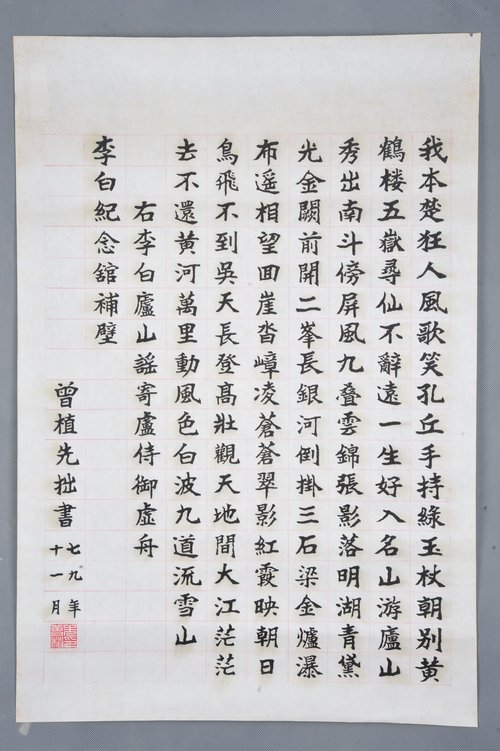 我本楚狂人風歌笑孔丘手持綠玉杖朝別黄
鶴楼五嶽尋仙不辭遠一生好入名山游廬山
秀出南斗傍屏風九叠雲錦張影落明湖青黛
光金闕前開二峯長銀河倒掛三石梁金爐瀑
布遥相望回崖沓嶂凌蒼蒼翠影紅霞映朝日
鳥飛不到吳天長登高壯觀天地間大江茫茫
去不還黄河萬里動風色白波九道流雪山
右李白廬山謡寄盧侍御虚舟
李白紀念舘補壁
曾植先拙書
七九年
十一月